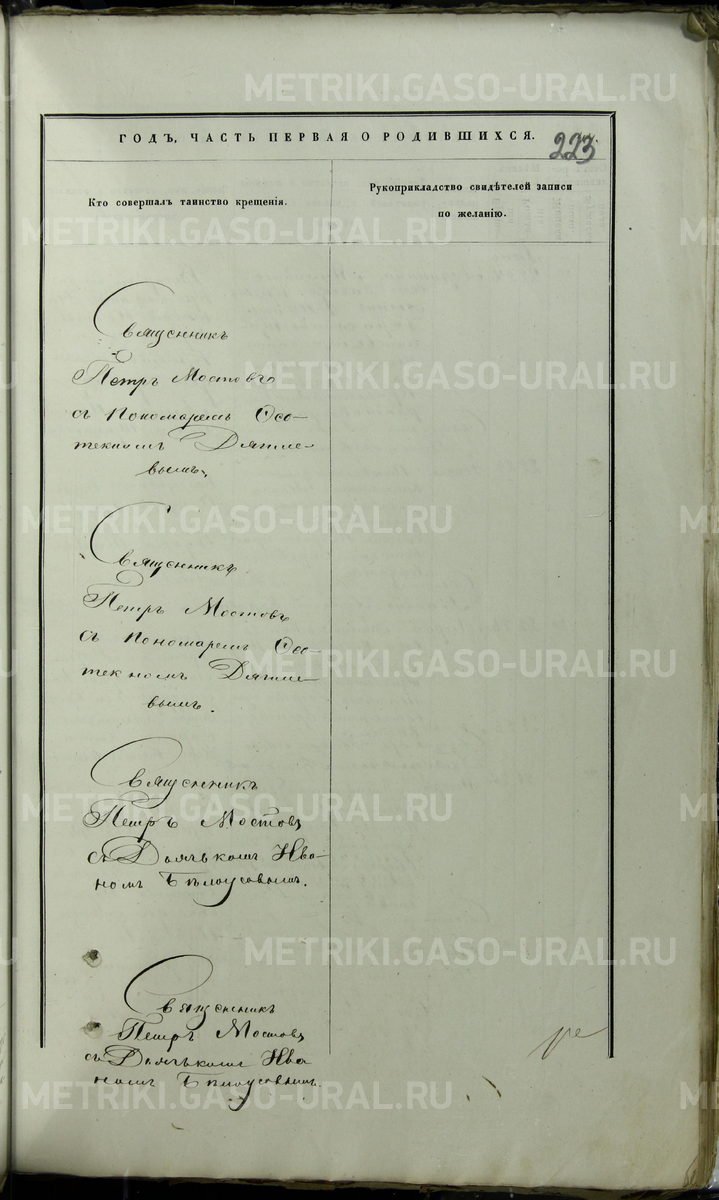 ГОДЪ, ЧАСТЬ ПЕРВАЯ О РОДИВШИХСЯ.
223
Кто совершалъ таинство крещенія.
Рукоприкладство свидѣтелей записи
по желанію.
Священникъ
Петръ Мостовъ
съ Пономаремъ
вымъ.
Священникъ
Петръ Мостовъ
съ Пономаремъ
вымъ.
Священникъ
Петръ Мостовъ
съ Дьячькомъ Ива-
номъ Бѣлоусовымъ.
Священникъ
Петръ Мостовъ
съ Дьячькомъ Ива
номъ Бѣлоусовымъ.
METRIKI.GASO-URAL.RU